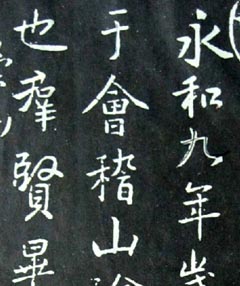 永和九年歲
于會稽山
也羣賢畢